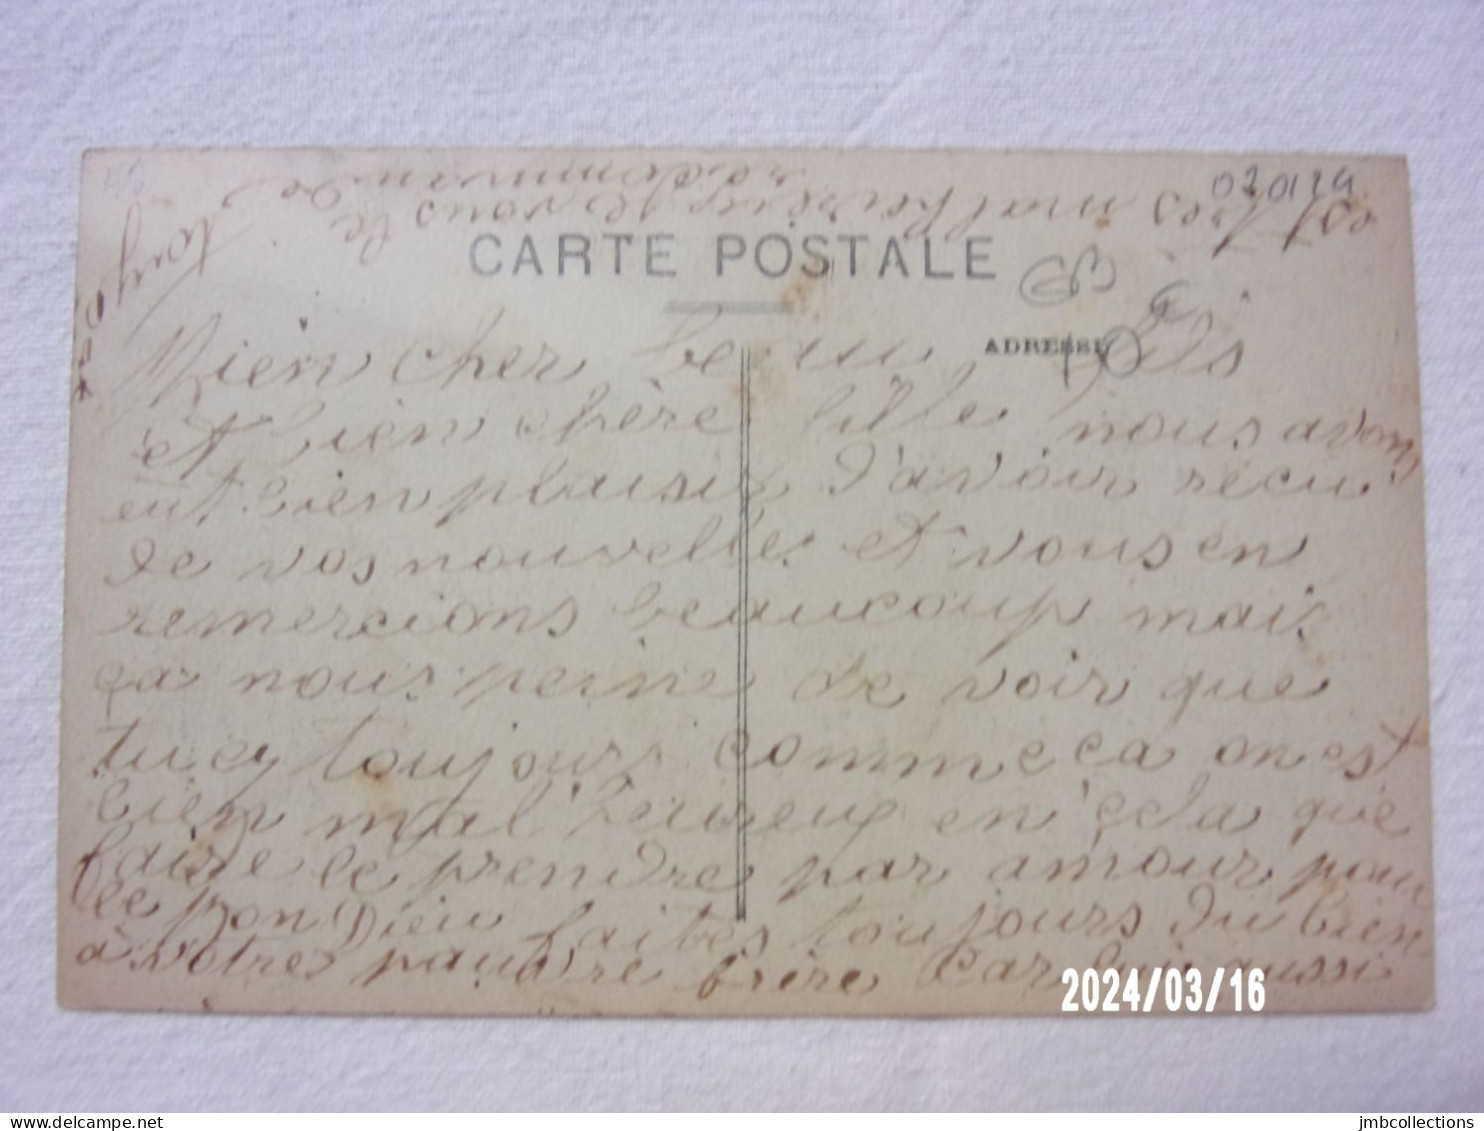 CARTE POSTALE
ADRESSE
020124
10 €
Mien cher beau fils
et bien chère fille nous avons
eut bien plaisir d'avoir recu
de vos nouvelles et vous en
remercions beaucoup mais
ça nous peine de voir que
tu ey toujours comme ça on est
bien mal'heureux en'cela que
faire le prendre par amour pour
le Bon Dieu faites toujours du bien
à votres pauvre frère car lui aussi
est tres malheureux je vous le
redemmande
2024/03/16
delcampe.net
jmbcollections